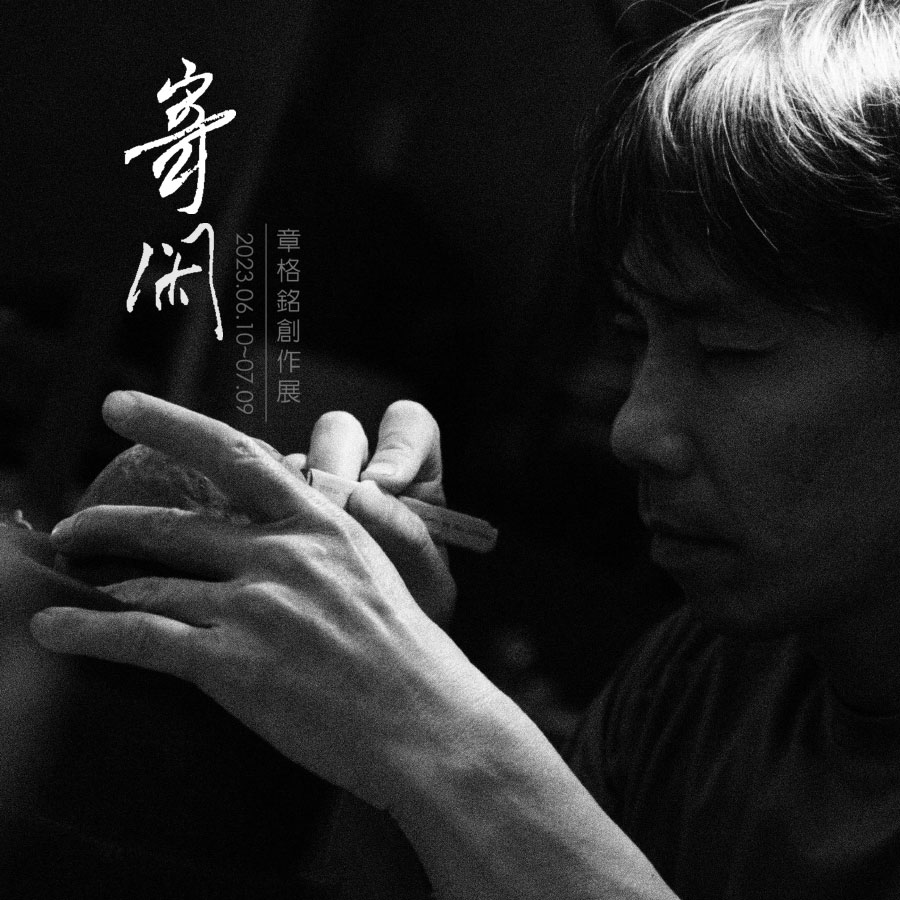 寄閑
章格銘創作展
2023.06.10~07.09